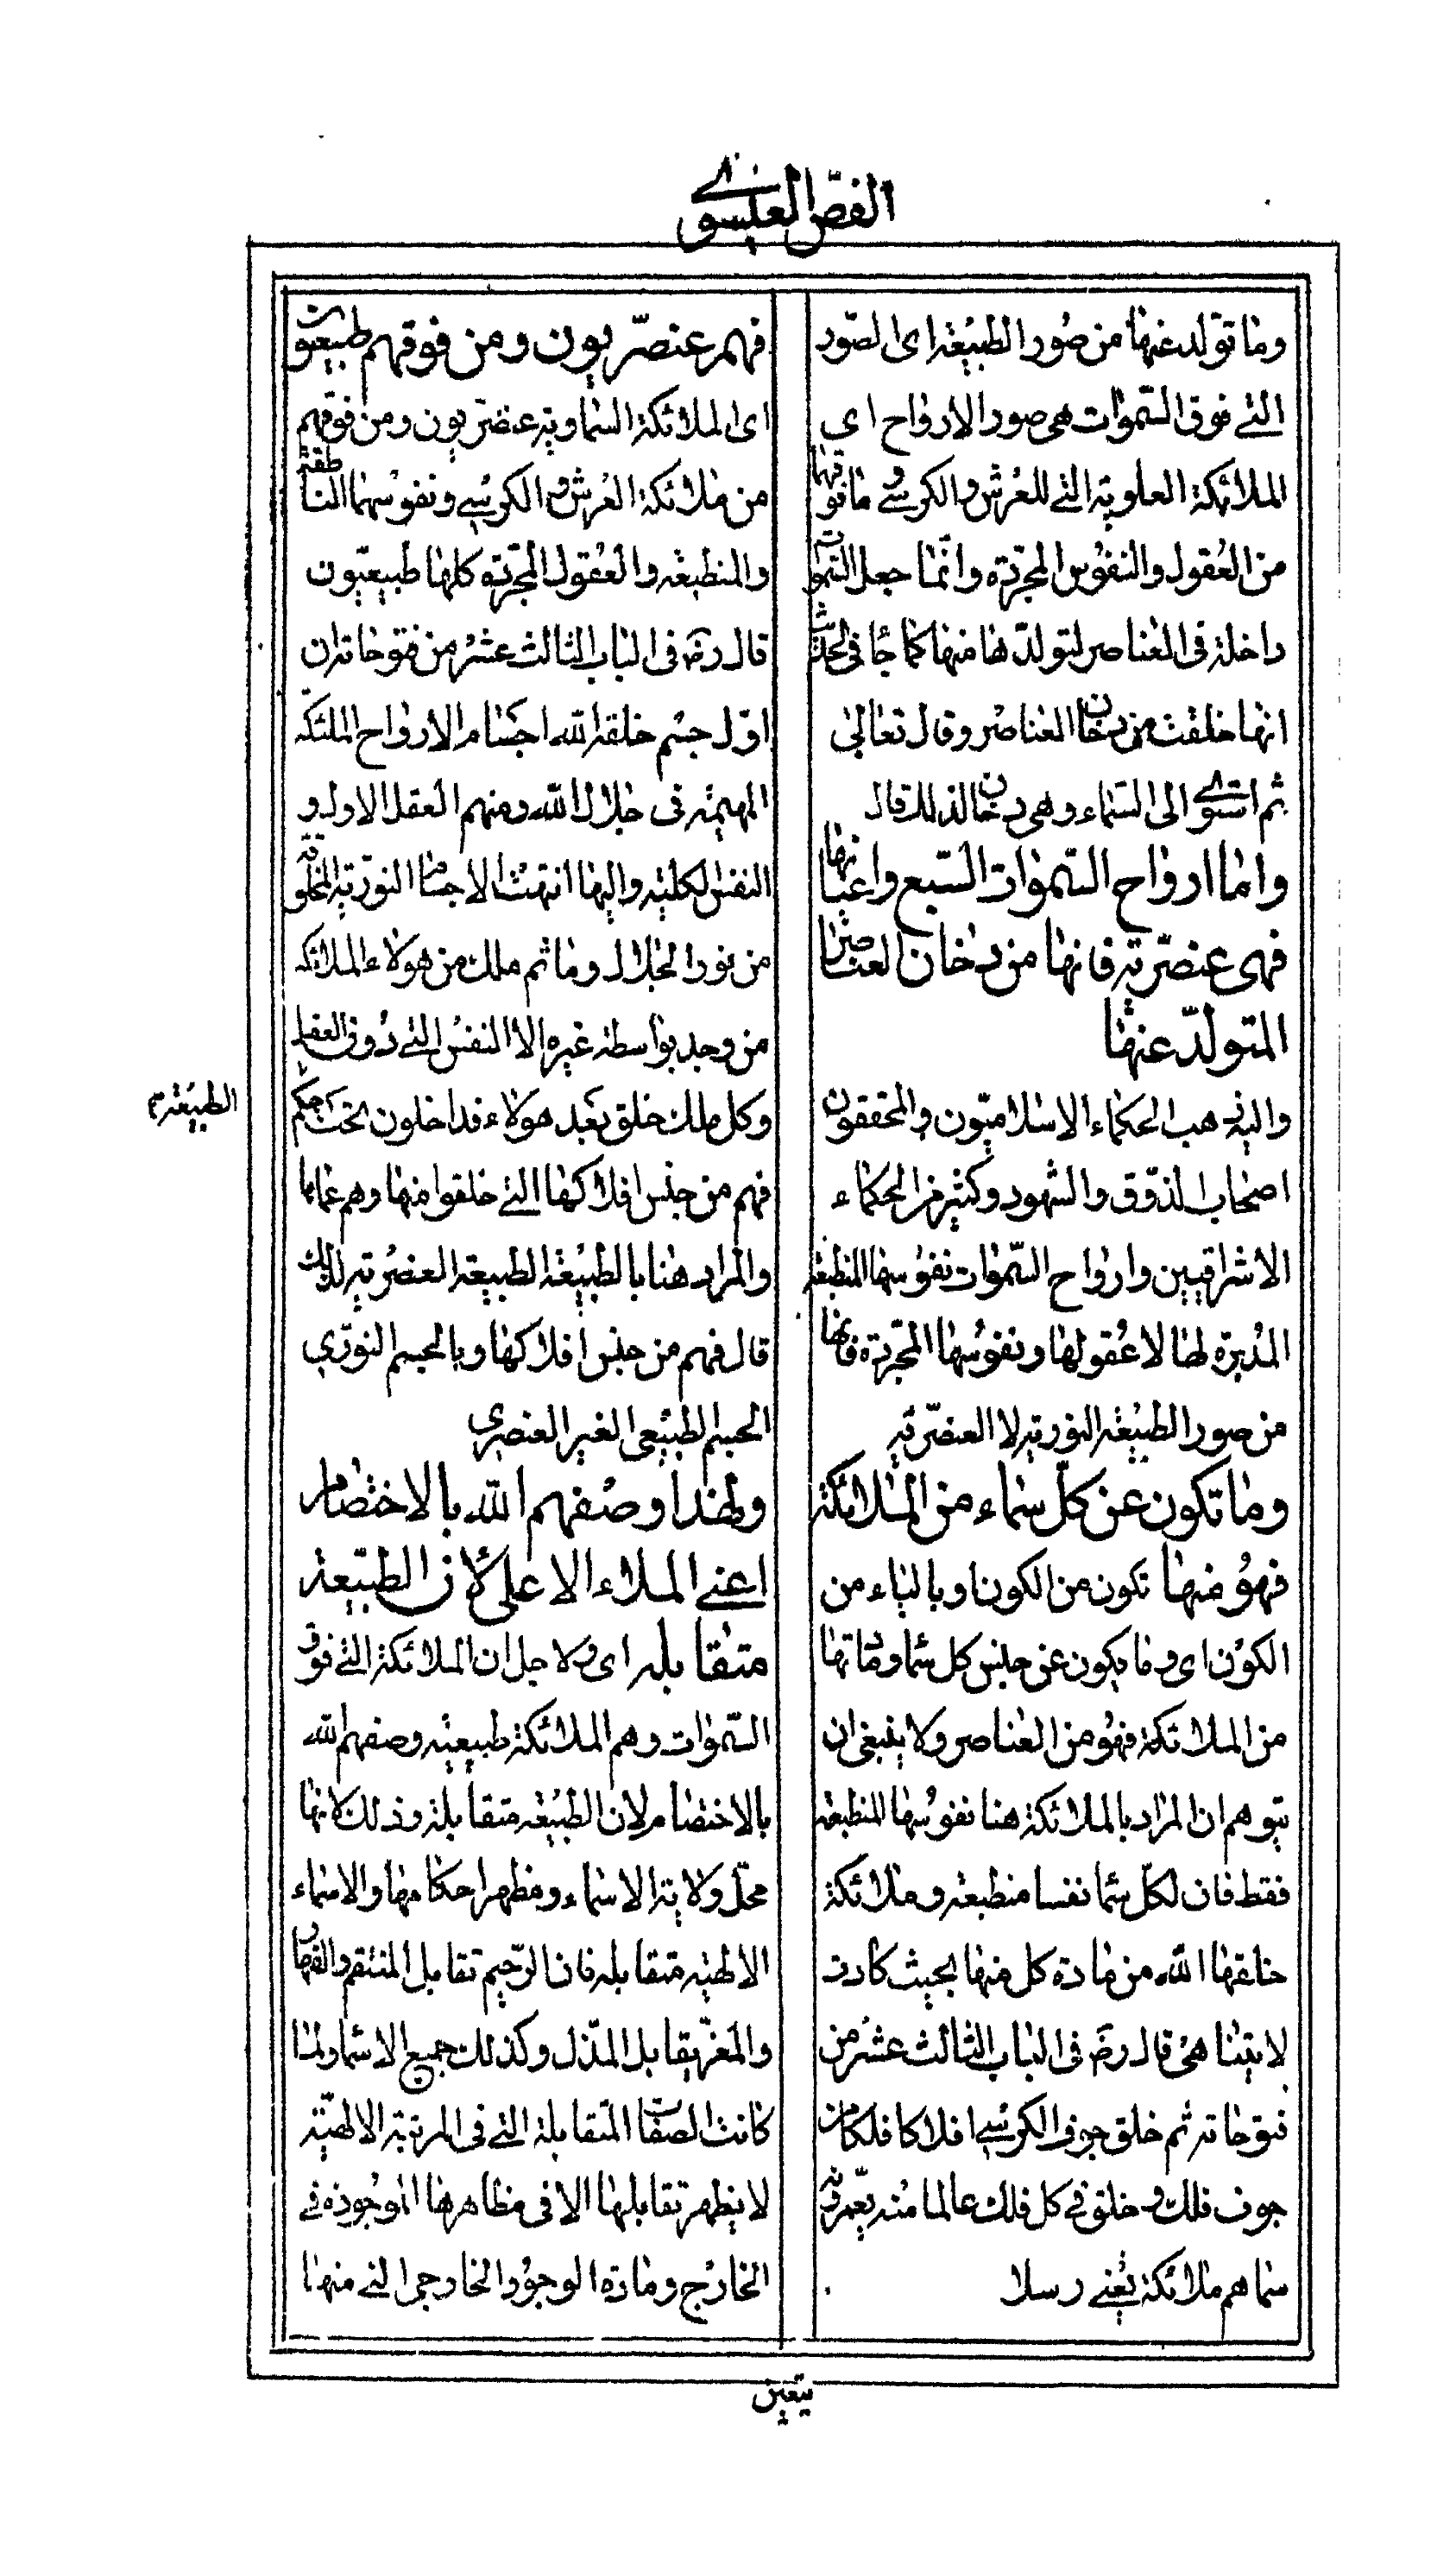 الفصّ العيسوى
وما تولد عنها من صور الطبيعة اى الصّور
التى فوق السّموات هى صور الارواح اى
الملائكة العلوية التى للعرش والكرسى وما فوقها
من العقول والنفوس المجرّدة وانّما جعل السّموات
داخلة فى العناصر لتولدّها منها كما جاء فى الحديث
انها خلقت من دخان العناصر وقال تعالى
ثم استوى الى السّماء وهى دخان لذلك قال
واما ارواح السّموات السّبع واعيانها
فهى عنصّرية فانها من دخان العناصر
المتولدّ عنها
واليه ذهب الحكماء الاسلاميّون والمحققون
اصحاب الذوّق والشهود وكثير من الحكماء
الاشراقيين وارواح السّموات نفوسها المنطبعة
المدبرة لها لا عقولها ونفوسها المجرّدة فانها
من صور الطبيعة النورية لا العنصّرية
وما تكون عن كلّ سماء من الملائكة
فهو منها تكون من الكون وبالياء من
الكون اى وما يكون عن جنس كل سما ومادتها
من الملائكة فهو من العناصر ولا ينبغى ان
يتوهم ان المراد بالملائكة هنا نفوسها المنطبعة
فقط فان لكلّ سما نفسا منطبعة وملائكة
خلقها الله من مادة كل منها بحيث كادت
لا يتناهى قال رض فى الباب الثالث عشر من
فتوحاته ثم خلق جوف الكرسى افلاكا فلكا من
جوف فلك وخلق فى كل فلك عالما منه يعّمرونه
سماهم ملائكة يعنى رسلا
فهم عنصّريون ومن فوقهم طبيعيون
اى الملائكة السماوية عنصّريون ومن فوقهم
من ملائكة العرش والكرسى ونفوسهما الناطقة
والمنطبعة والعقول المجرّدة كلها طبيعيّون
قال رض فى الباب الثالث عشر من فتوحاته ان
اوّل جسم خلقه الله اجسام الارواح الملئكة
المهيمة فى جلال الله ومنهم العقل الاول و
النفس الكلية واليها انتهت الاجسام النوّرية المخلوقة
من نور الجلال وما ثم ملك من هولاء الملائكة
من وجد بواسطة غيره الا النفس التى دون العقل
وكل ملك خلق بعد هولاء فداخلون تحت حكم
الطبيعة
فهم من جنس افلاكها التى خلقوا منها وهم عمارها
والمراد هنا بالطبيعة الطبيعة العنصرية لذلك
قال فهم من جنس افلاكها وبالجسم النورّى
الجسم الطبيعى الغير العنصرى
ولهذا وصفهم الله بالاختصام
اعنى الملاء الاعلى لان الطبيّعة
متقابله اى ولاجل ان الملائكة التى فوق
السّموات وهم الملائكة طبيعيّة وصفهم الله
بالاختصام لان الطبيعة متقابلة وذلك لانها
محلّ ولاية الاسماء ومظهر احكامها والاسماء
الالهيّة متقابله فان الرّحيم تقابل المنتقم والقهار
والمعزّ يقابل المذّل وكذلك جميع الاسما ولما
كانت الصفات المتقابلة التى فى المرتبة الالهيّة
لا يظهر تقابلها الا فى مظاهرها الموجودة فى
الخارج ومادة الوجود الخارجى التى منها
يتعين